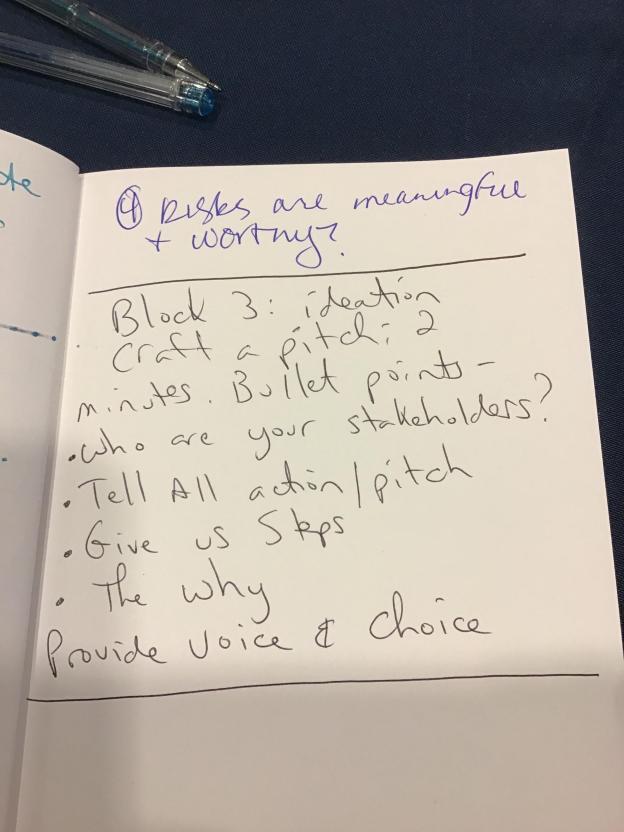 te
④ Risks are meaningful
+ worthy?
Block 3: ideation
Craft a pitch; 2
minutes. Bullet points -
• Who are your stakeholders?
• Tell All action/pitch
• Give us Steps
• The why
Provide Voice & Choice